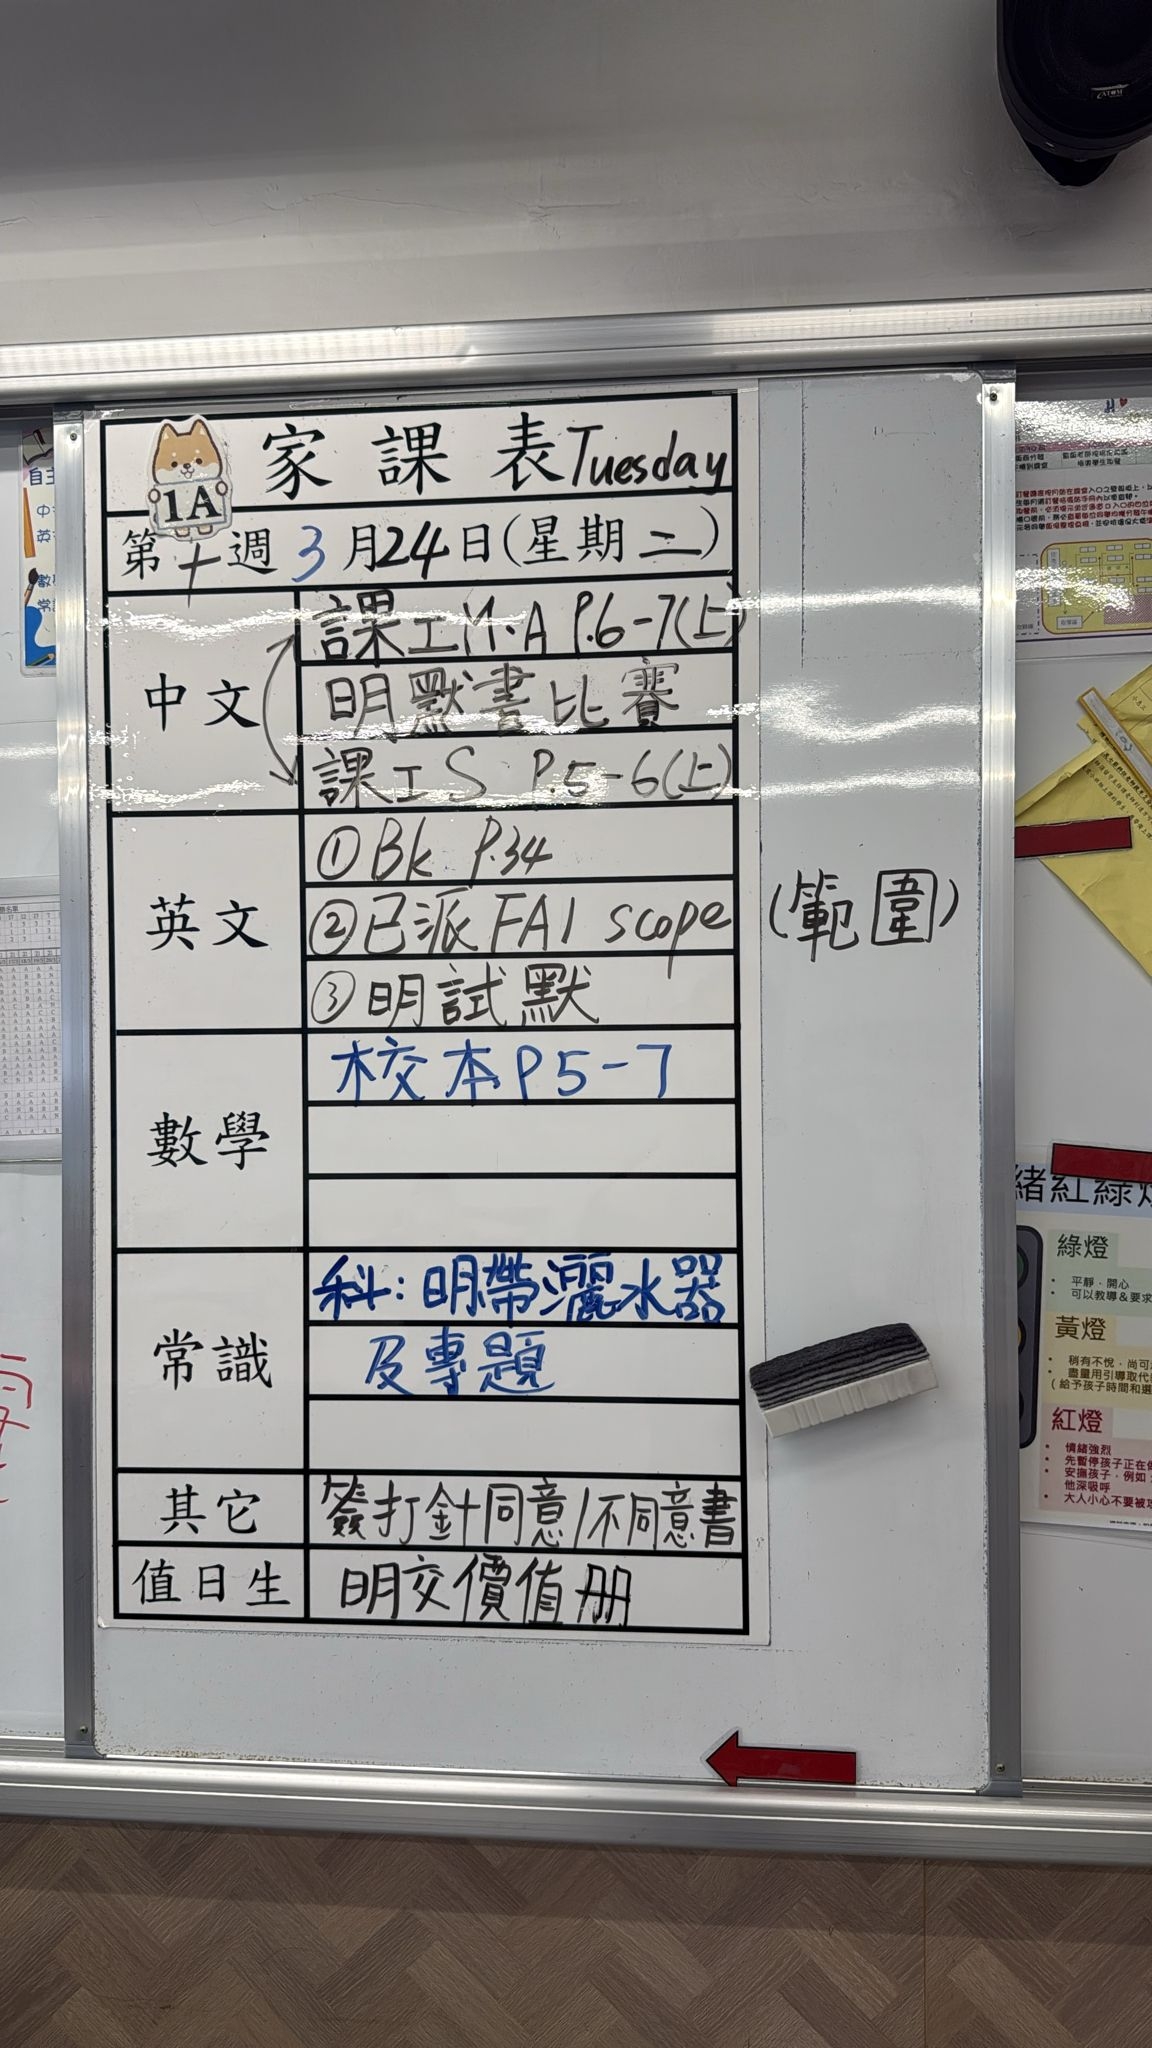 家課表 Tuesday
1A
第十週 3月24日(星期二)
中文
課工M.A P.6-7(上)
明默書比賽
課工S P.5-6(上)
英文
①Bk P.34
②已派FA1 scope (範圍)
③明試默
數學
校本P5-7
常識
科:明帶灑水器
及專題
其它
簽打針同意/不同意書
值日生
明交價值册
ATOM
自主
緒紅綠燈
綠燈
平靜．開心
可以教導＆要求
黃燈
稍有不悅，尚可
盡量用引導取代
(給予孩子時間和選
紅燈
情緒強烈
先暫停孩子正在
安撫孩子，例如
他深吸呼
大人小心不要被